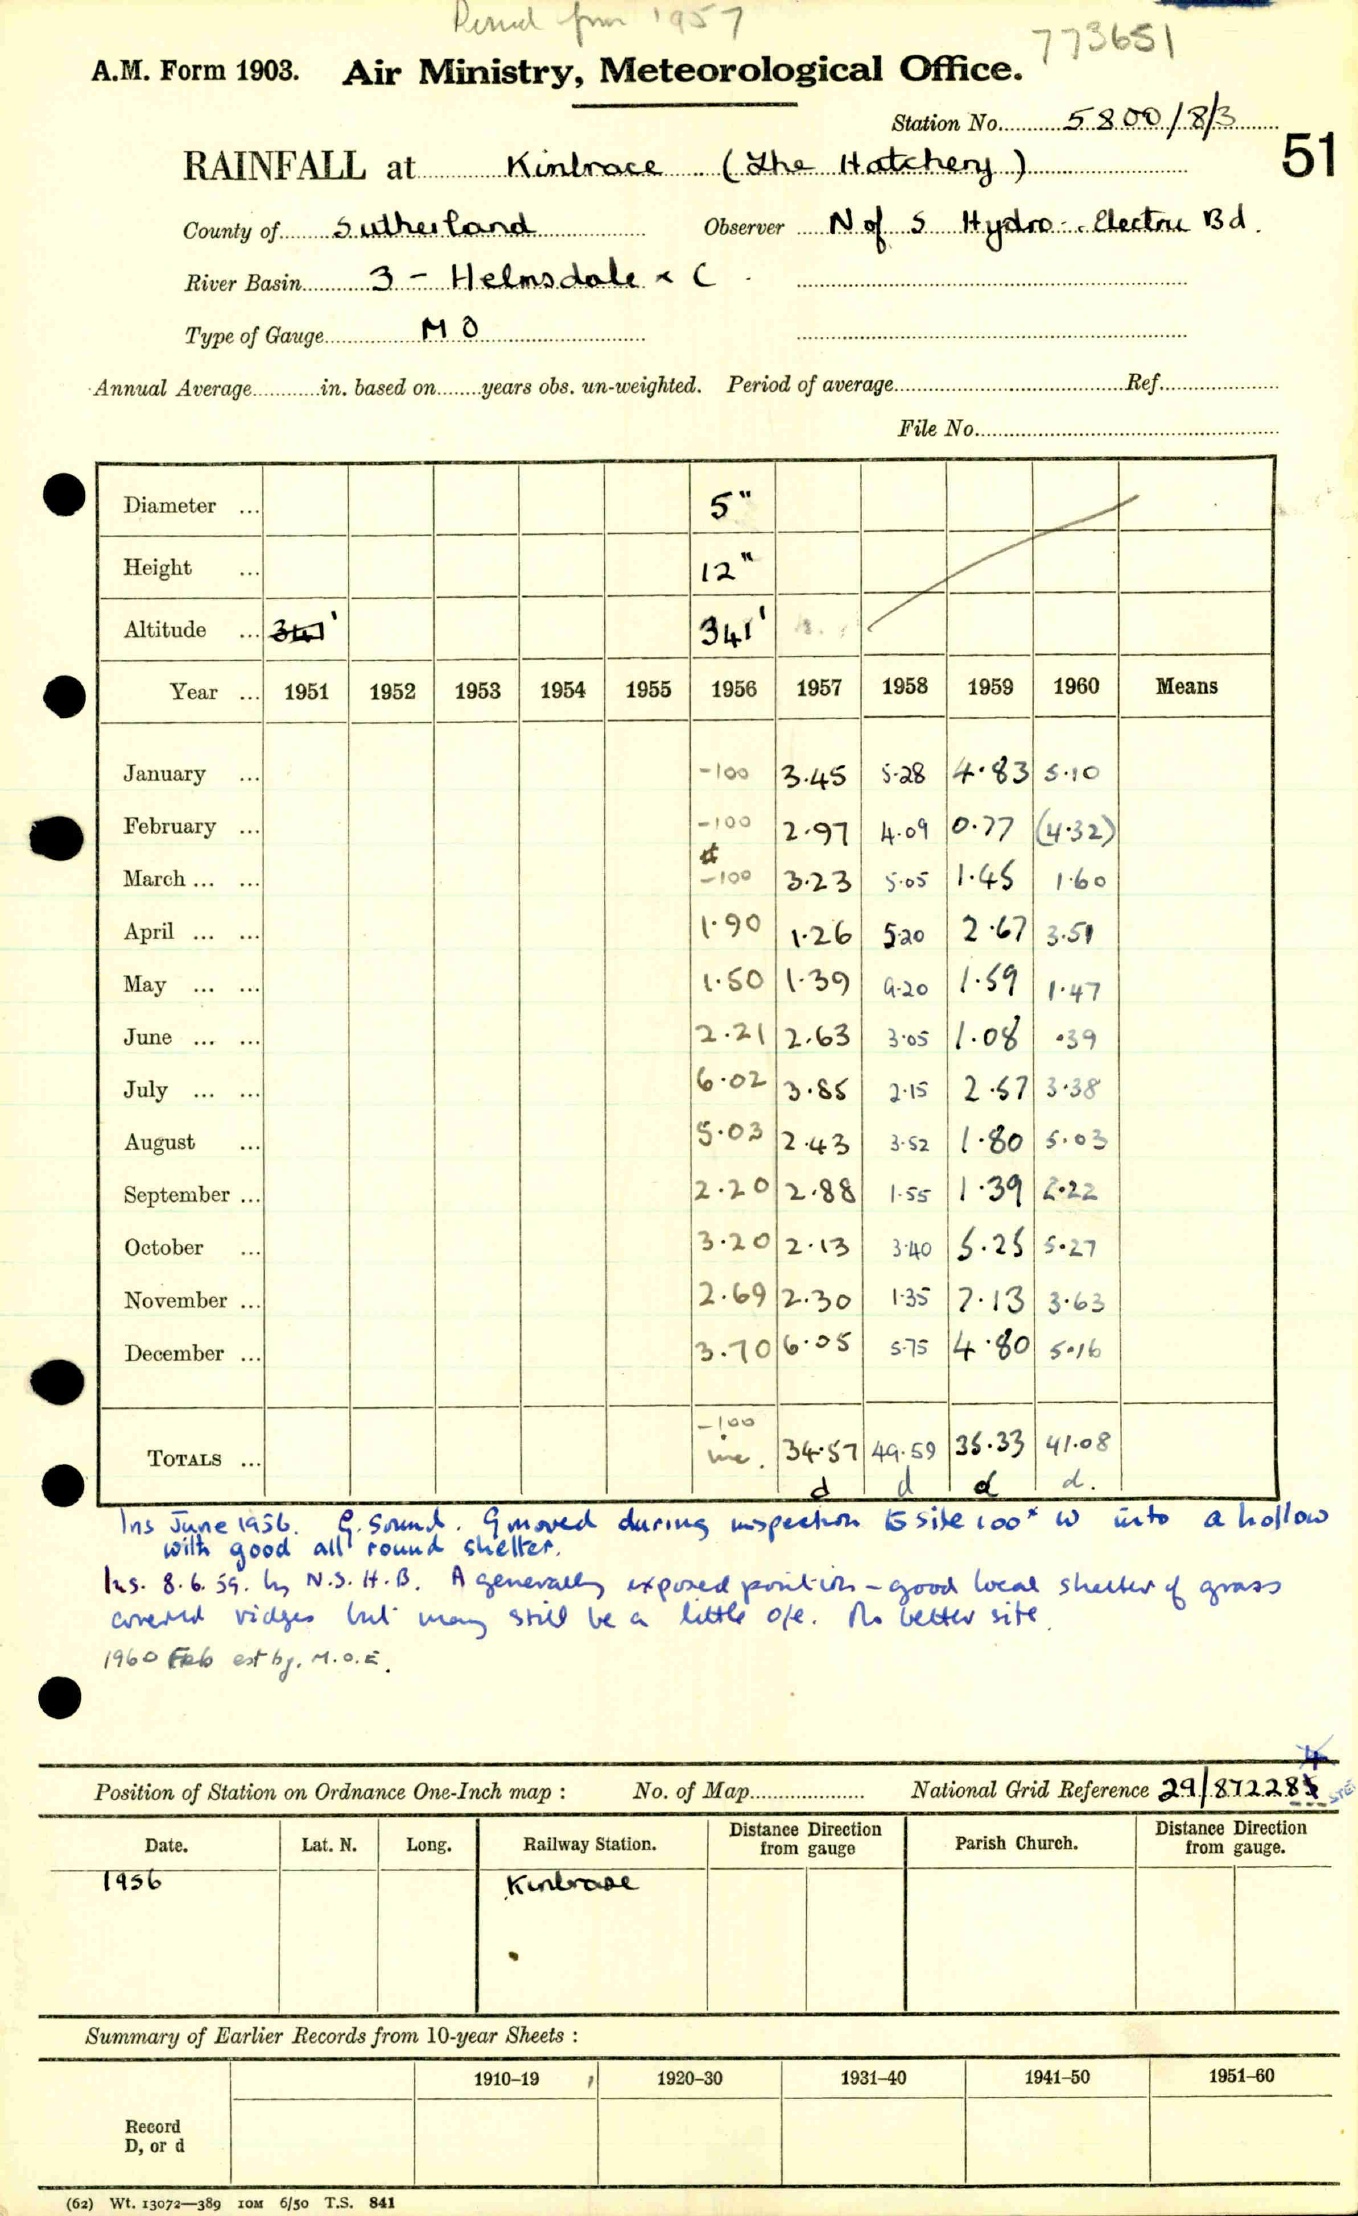 from 1957
773651
A.M. Form 1903. Air Ministry, Meteorological Office.
Station No. 5800/8/3
51
RAINFALL at Kinbrace (The Hatchery)
County of Sutherland Observer N of S Hydro-Electric Bd.
River Basin 3 - Helmsdale & C
Type of Gauge M O
Annual Average in. based on years obs. un-weighted. Period of average Ref.
File No.
Diameter ... 5"
Height ... 12"
Altitude ... 341' 341'
Year ... 1951 1952 1953 1954 1955 1956 1957 1958 1959 1960 Means
January ... -100 3.45 5.28 4.83 5.10
February ... -100 2.97 4.09 0.77 (4.32)
March ... ... -100 3.23 5.05 1.45 1.60
April ... ... 1.90 1.26 5.20 2.67 3.51
May ... ... 1.50 1.39 9.20 1.59 1.47
June ... ... 2.21 2.63 3.05 1.08 .39
July ... ... 6.02 3.85 2.15 2.57 3.38
August ... 5.03 2.43 3.52 1.80 5.03
September ... 2.20 2.88 1.55 1.39 2.22
October ... 3.20 2.13 3.40 5.25 5.27
November ... 2.69 2.30 1.35 7.13 3.63
December ... 3.70 6.05 5.75 4.80 5.16
-100
TOTALS ... inc. 34.57 49.59 35.33 41.08
d d d d.
Ins June 1956. G. Sound. G moved during inspection to site 100x W into a hollow
with good all round shelter.
Ins. 8.6.59. by N.S.H.B. A generally exposed position - good local shelter of grass
covered ridges but may still be a little o/e. No better site.
1960 Feb est by. M.O.E.
4
Position of Station on Ordnance One-Inch map : No. of Map National Grid Reference 29/872285
Date. Lat. N. Long. Railway Station. Distance Direction from gauge Parish Church. Distance Direction from gauge.
1956 Kinbrace
Summary of Earlier Records from 10-year Sheets :
1910–19 1920–30 1931–40 1941–50 1951–60
Record
D, or d
(62) Wt. 13072—389 10M 6/50 T.S. 841